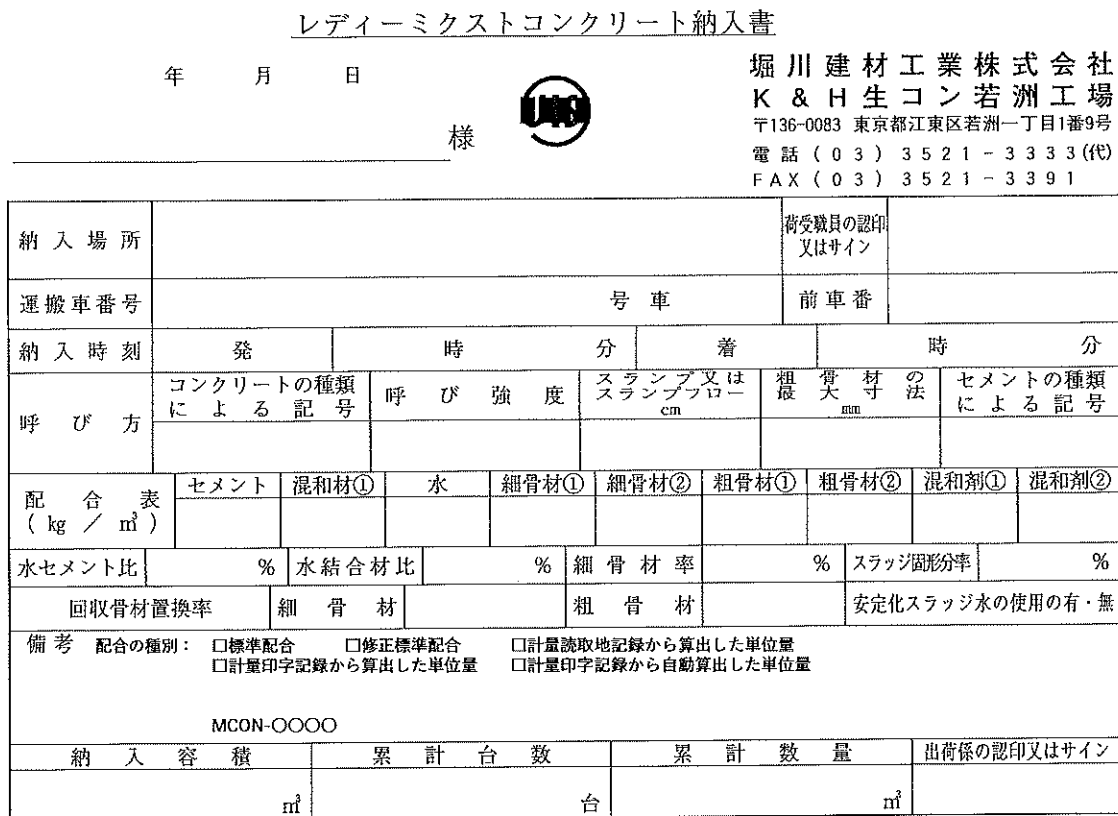 レディーミクストコンクリート納入書
年 月 日
様
堀川建材工業株式会社
K & H生コン若洲工場
〒136-0083 東京都江東区若洲一丁目1番9号
電話(03)3521-3333(代)
FAX(03)3521-3391
納入場所 荷受職員の認印又はサイン
運搬車番号 号車 前車番
納入時刻 発 時 分 着 時 分
呼び方 コンクリートの種類による記号 呼び強度 スランプ又はスランプフロー cm 粗骨材の最大寸法 mm セメントの種類による記号
配合表 (kg/m³) セメント 混和材① 水 細骨材① 細骨材② 粗骨材① 粗骨材② 混和剤① 混和剤②
水セメント比 % 水結合材比 % 細骨材率 % スラッジ固形分率 %
回収骨材置換率 細骨材 粗骨材 安定化スラッジ水の使用の有・無
備考 配合の種別: □標準配合 □修正標準配合 □計量読取地記録から算出した単位量
□計量印字記録から算出した単位量 □計量印字記録から自動算出した単位量
MCON-〇〇〇〇
納入容積 累計台数 累計数量 出荷係の認印又はサイン
m³ 台 m³